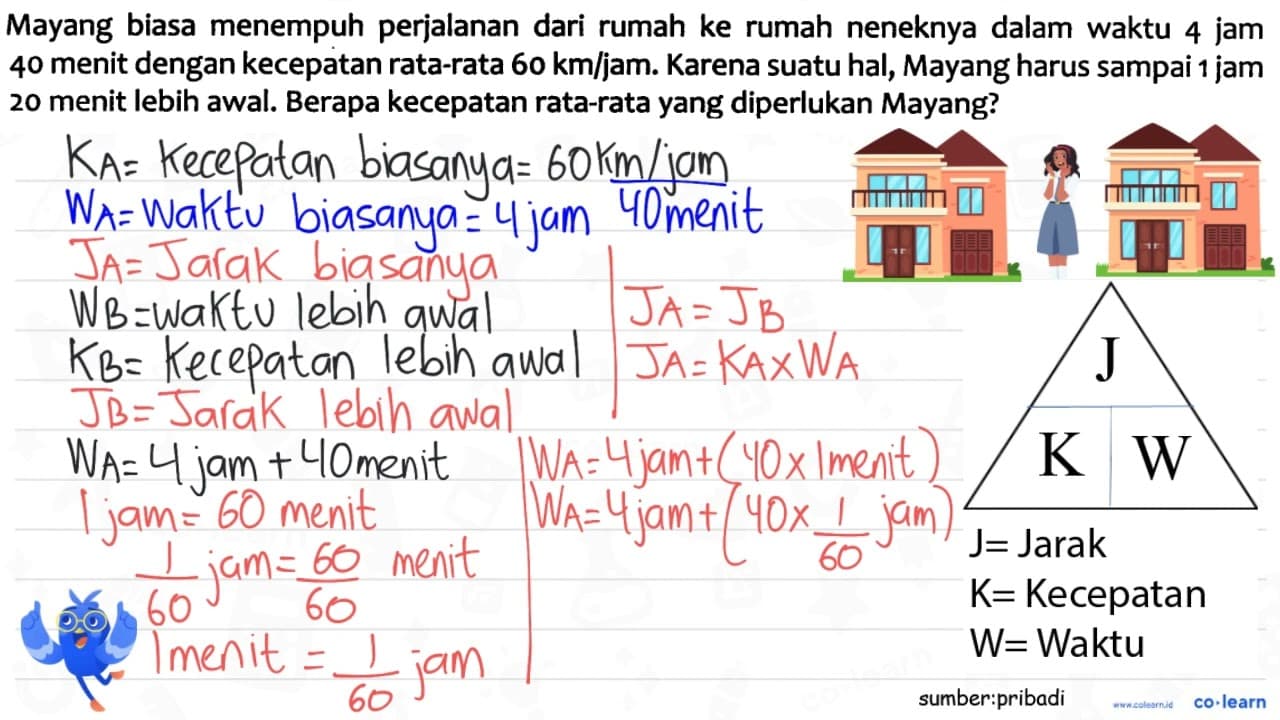 Mayang biasa menempuh perjalanan dari rumah ke rumah neneknya dalam waktu 4 jam
40 menit dengan kecepatan rata-rata 60 km/jam. Karena suatu hal, Mayang harus sampai 1 jam
20 menit lebih awal. Berapa kecepatan rata-rata yang diperlukan Mayang?
KA= Kecepatan biasanya= 60 Km/jam
WA= Waktu biasanya= 4 jam 40 menit
JA= Jarak biasanya
WB=waktu lebih awal
KB= Kecepatan lebih awal
JB= Jarak lebih awal
JA= JB
JA= KA×WA
WA= 4 jam + 40menit
1 jam= 60 menit
1/60 jam= 60/60 menit
1menit = 1/60 jam
WA= 4 jam+ (40 × 1menit)
WA= 4 jam+ (40× 1/60 jam)
J
K W
J= Jarak
K= Kecepatan
W= Waktu
sumber:pribadi
www.colearn.id co·learn